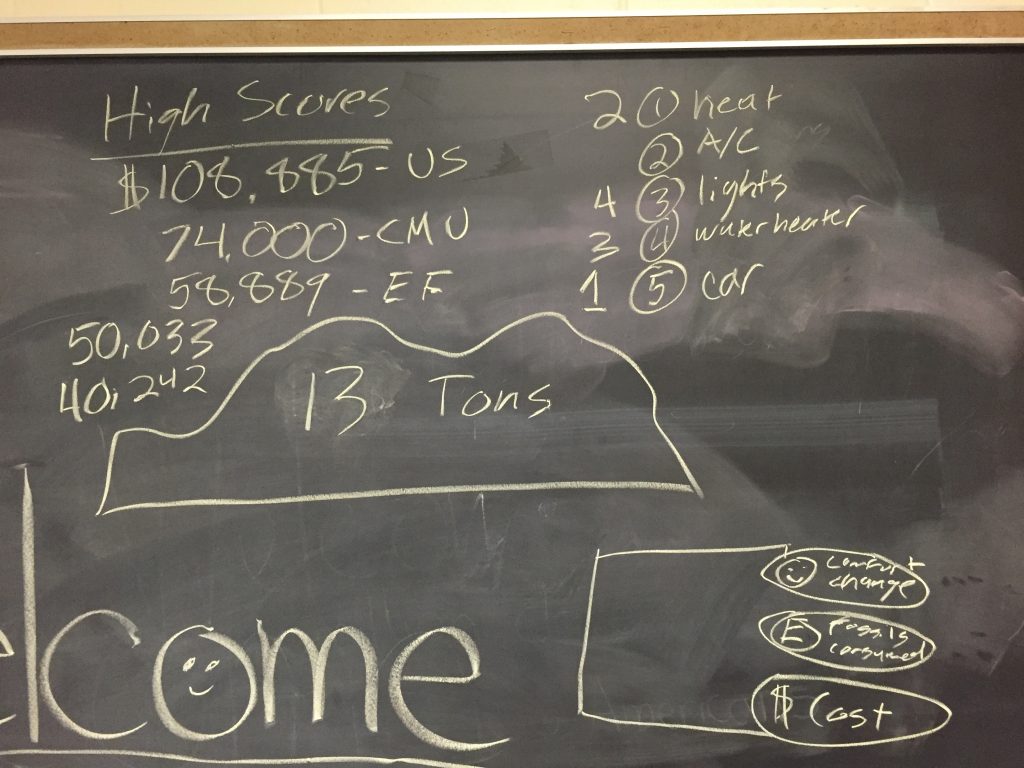 High Scores
$108,885 - US
74,000 - CMU
58,889 - EF
50,033
40,242
2 ① heat
② A/C
4 ③ lights
3 ④ waterheater
1 ⑤ car
13 Tons
elcome
Comfort
change
E Fossils
consumed
$ Cost